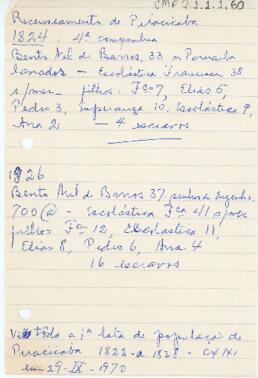 CMF 2.1.1.60
Recenseamento de Piracicaba
1824. 4ª companhia
Bento Mel de Barros, 33 n Parnaiba
lavrador – Escolástica Francisca 38
s/prof – filhos: Fco 7, Elias 5
Pedro 3, Esperança 10, Escolástica 9,
Ana 2 – 4 escravos
1826
Bento Mel de Barros 37 senhor de Engenho
700 @ – Escolástica Fca 41 s/prof
filhos Fco 12, Escolastica 11,
Elias 8, Pedro 6, Ana 4
16 escravos
Vi toda a 1ª lata de população de
Piracicaba 1822 a 1828 – cx 1X1
em 29-IX-1970